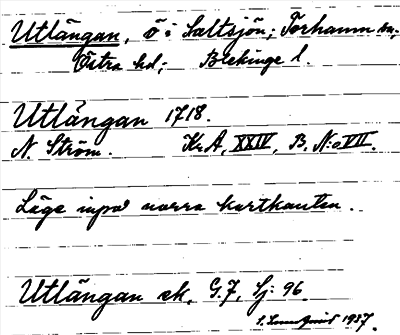 Utlängan, ö i Saltsjön; Torhamn sn,
Östra hd; Blekinge l.
Utlängan 1718.
N. Ström. Kr.A, XXIV, B. N:o VII.
Läge inpå norra kartkanten.
Utlängan ek. G.7, Sj: 96
1937.